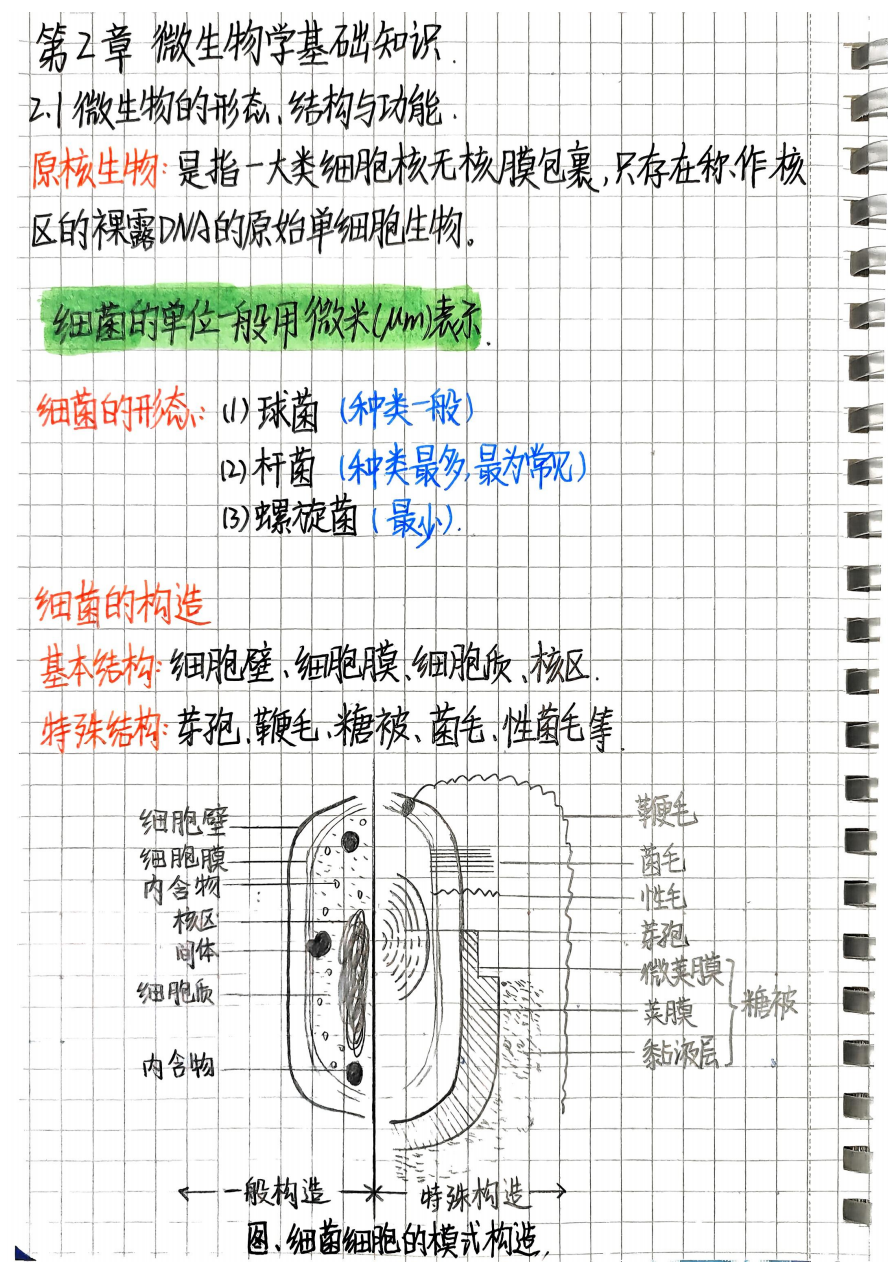 第2章 微生物学基础知识.
2.1 微生物的形态、结构与功能.
原核生物:是指一大类细胞核无核膜包裹,只存在称作核
区的裸露DNA的原始单细胞生物。
细菌的单位一般用微米(μm)表示.
细菌的形态: (1)球菌 (种类一般)
(2)杆菌 (种类最多,最为常见)
(3)螺旋菌 (最少).
细菌的构造
基本结构:细胞壁、细胞膜、细胞质、核区.
特殊结构:芽孢、鞭毛、糖被、菌毛、性菌毛等.
细胞壁
细胞膜
内含物
核区
间体
细胞质
内含物
鞭毛
菌毛
性毛
芽孢
微荚膜
荚膜
黏液层
糖被
一般构造
特殊构造
图、细菌细胞的模式构造.